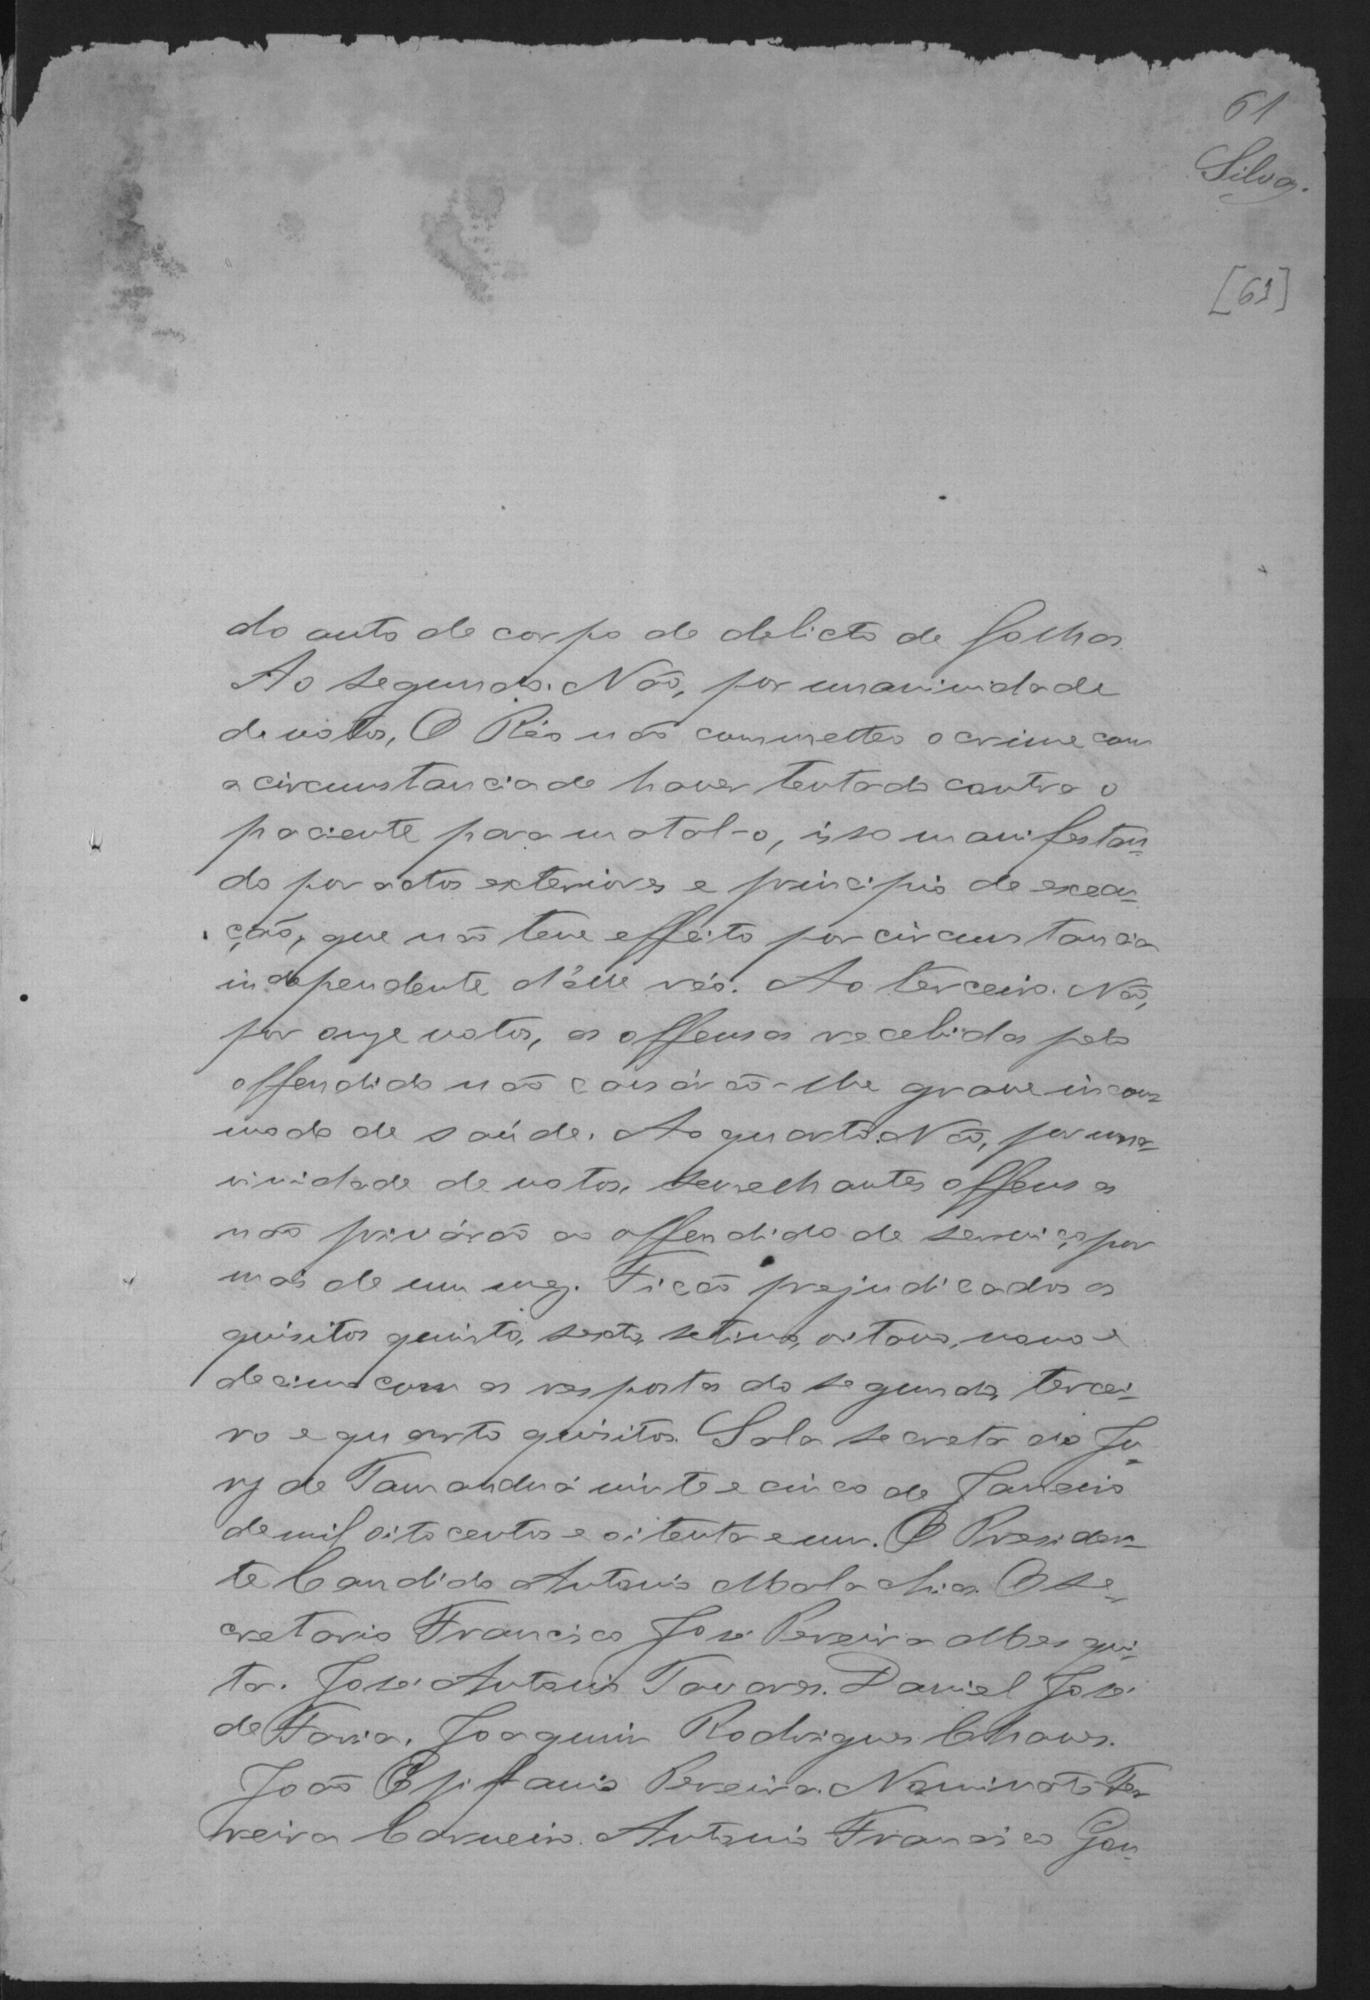 61
Silva.
[61]
do auto de corpo de delicto de folhas.
Ao segundo. Não, por unanimidade
de votos, O Réo não commetteo o crime com
a circumstancia de haver tentado contra o
paciente para matal-o, isso manifestan-
do por actos exteriores e principio de execu-
ção, que não teve effeito por circumstancia
independente d'elle réo. Ao terceiro. Não,
por onze votos, as offensas recebidas pelo
offendido não causárão-lhe grave incom-
modo de saúde. Ao quarto. Não, por una-
nimidade de votos, semelhantes offensas
não privárão ao offendido de serviço por
mais de um mez. Ficão prejudicados os
quisitos quinto, sexto, setimo, oitavo, nono e
decimo com as respostas do segundo, tercei-
ro e quarto quisitos. Sala secreta do Ju-
ry de Tamanduá vinte e cinco de Janeiro
de mil oito centos e oitenta e um. O Presiden-
te Candido Antonio Malachias. O Se-
cretario Francisco José Pereira Mesqui-
ta. José Antonio Tavares. Daniel José
de Faria. Joaquim Rodrigues Chaves.
João Epifanio Pereira. Nominato Fer-
reira Carneiro. Antonio Francisco Gon-